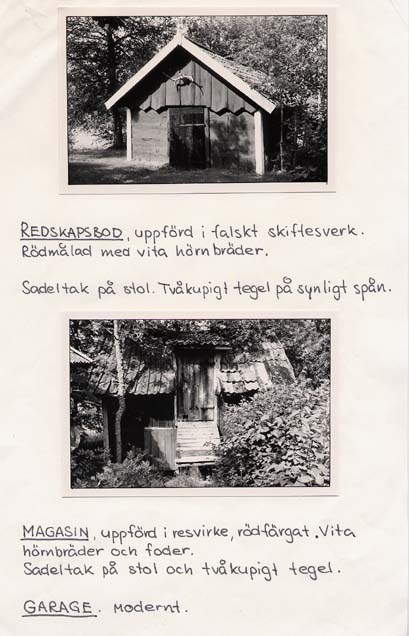 REDSKAPSBOD, uppförd i falskt skiftesverk.
Rödmålad med vita hörnbräder.
Sadeltak på stol. Tvåkupigt tegel på synligt spån.
MAGASIN, uppförd i resvirke, rödfärgat. Vita
hörnbräder och foder.
Sadeltak på stol och tvåkupigt tegel.
GARAGE. Modernt.